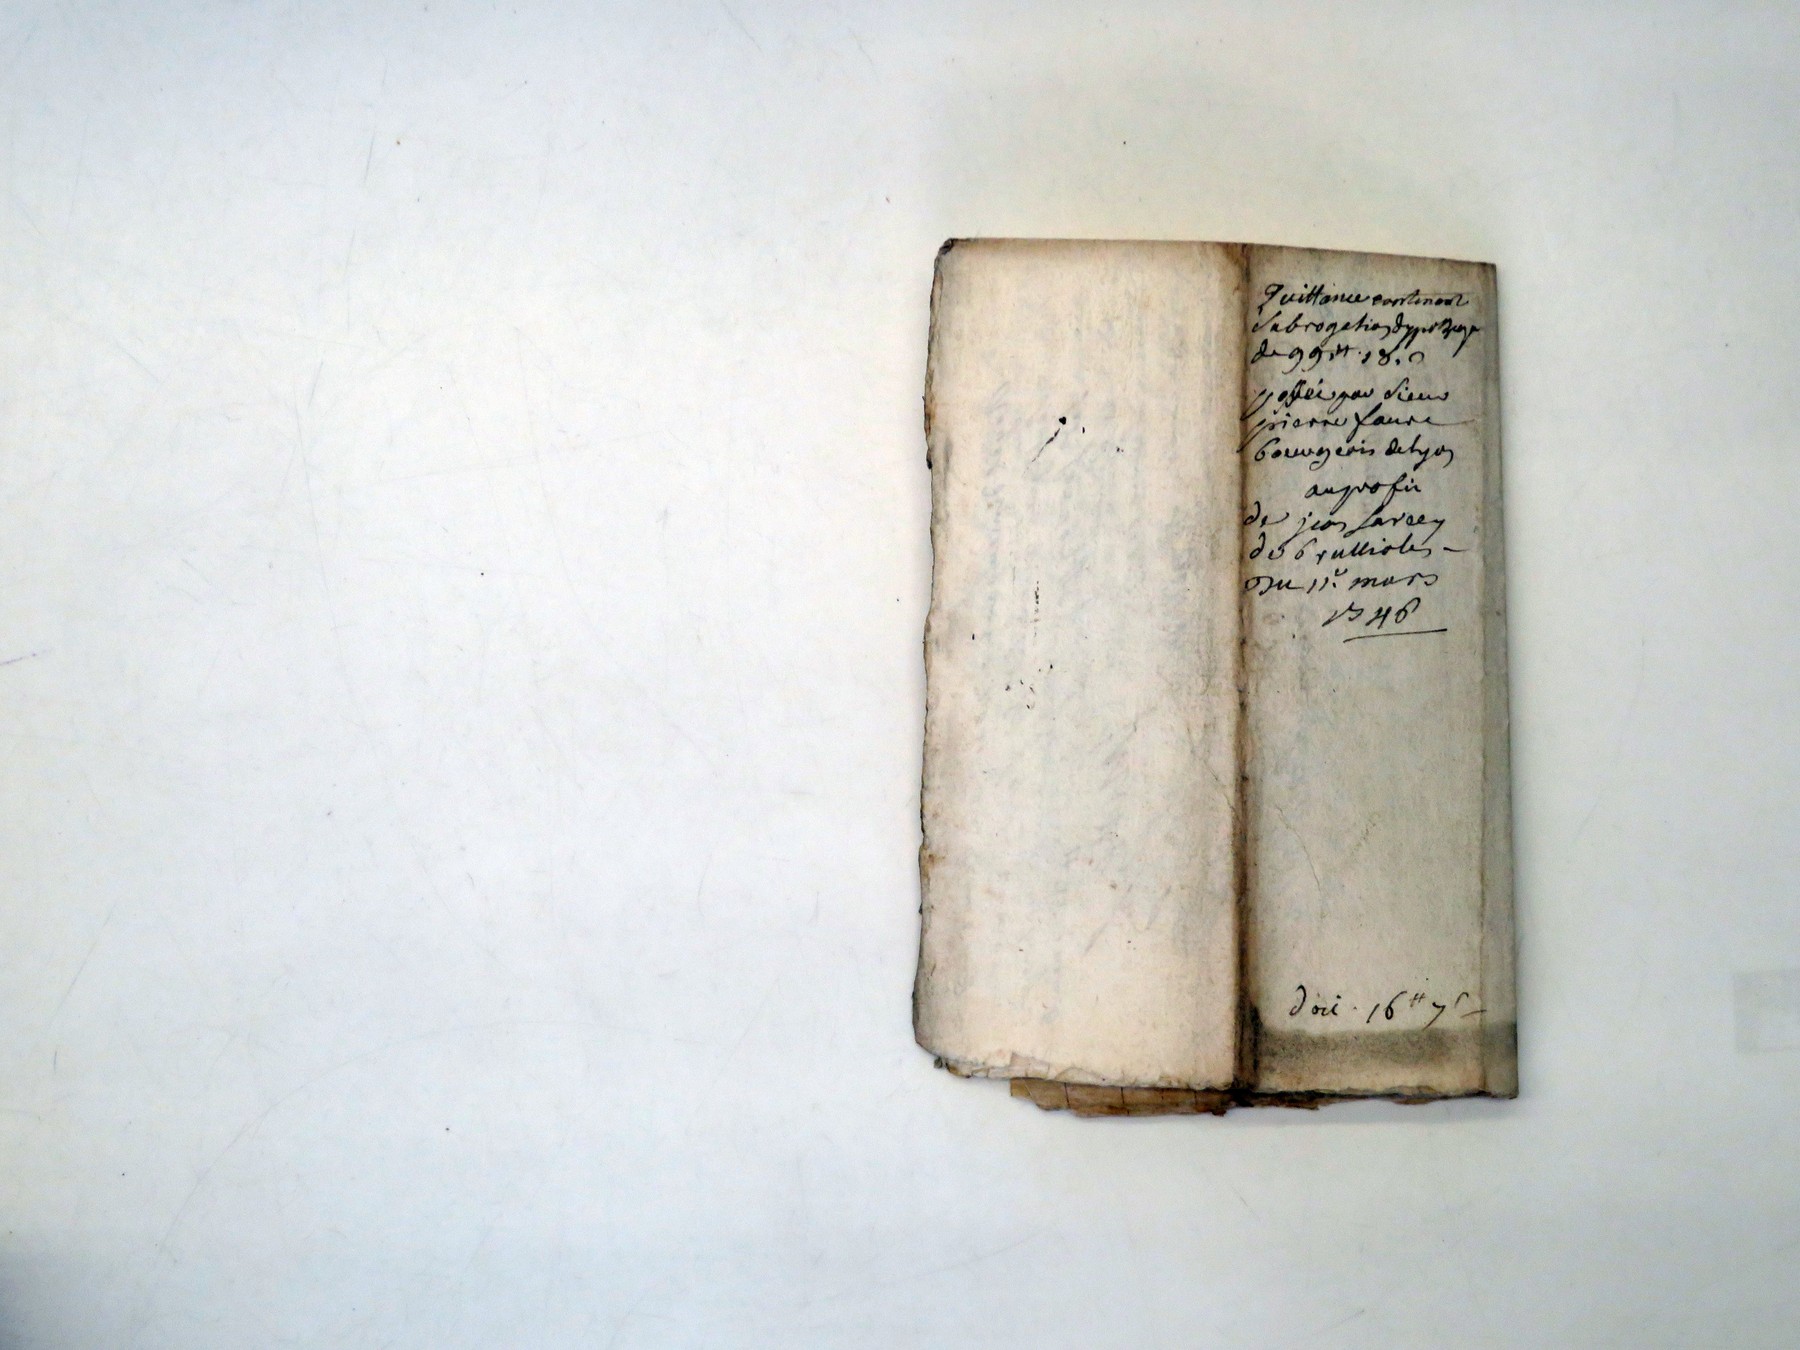 Quittance contenant
Subrogation dypotheque
de 99tt. 18. s
passée par Sieur
pierre faure
bourgeois de Lyon
au profit
de jean farcey
de brullioles -
Du 11e. mars
1746
doit. 16tt 7s